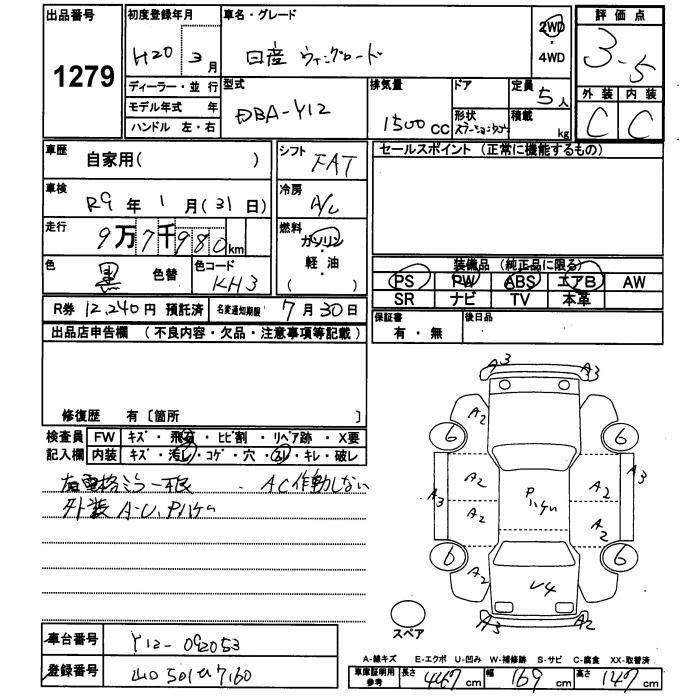 出品番号
1279
初度登録年月
H20 年 3 月
ディーラー・並行
モデル年式 年
ハンドル 左・右
車名・グレード
日産 ウィングロード
2WD
・
4WD
型式
DBA-Y12
排気量
1500 cc
ドア
形状
ステーションワゴン
定員
5人
積載
kg
評価点
3.5
外装 内装
C C
車歴
自家用( )
車検
R9 年 1 月 (31 日)
走行
9万7千980km
色
黒 色替
色コード
KH3
シフト
FAT
冷房
A/C
燃料
ガソリン
・
軽・油
( )
セールスポイント (正常に機能するもの)
装備品 (純正品に限る)
PS PW ABS エアB AW
SR ナビ TV 本革
R券 12,240円 預託済
名変通知期限 7月30日
保証書
有・無
後日品
出品店申告欄 (不良内容・欠品・注意事項等記載)
修復歴 有〔箇所 〕
検査員
記入欄
FW キズ・飛石・ヒビ割・リペア跡・X要
内装 キズ・汚レ・コゲ・穴・スレ・キレ・破レ
右電格ミラー不良 ・AC作動しない
外装A-U、Pハゲ
A3 A3
A2 A2
6 6
A3 A2 A2 A3
Pハゲ
A2 A2
6 6
A2 A2
V4
A3 A2
スペア
車台番号
Y12-092053
登録番号
A-線キズ E-エクボ U-凹み W-補修跡 S-サビ C-腐食 XX-取替済
車庫証明用
参考
長さ 447cm 幅 169cm 高さ 147cm